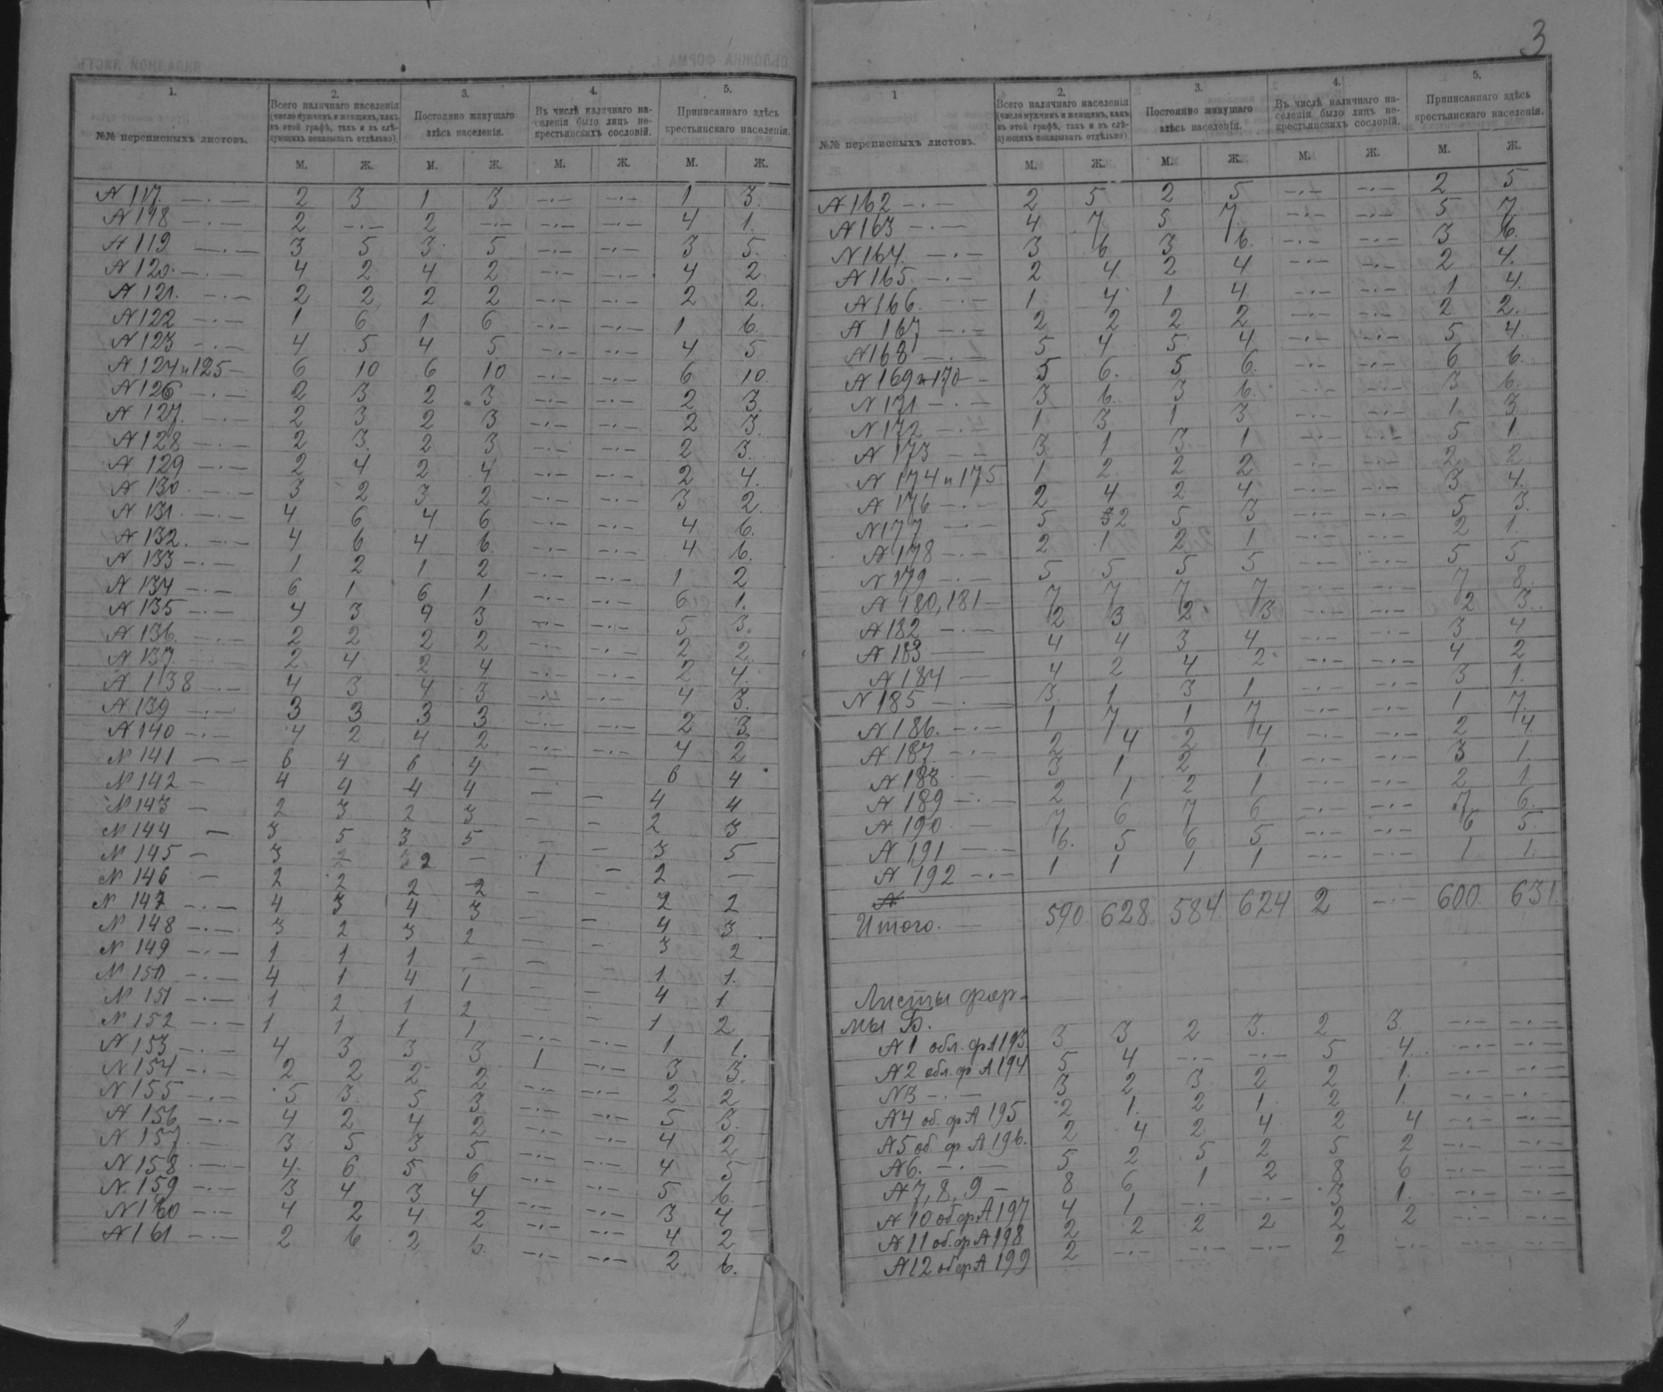 1.
2.
3.
4.
5.
№№ переписныхъ листовъ.
Всего наличнаго населенія
(число мужчинъ и женщинъ, какъ
въ этой графѣ, такъ и въ слѣ-
дующихъ показывать отдѣльно).
Постоянно живущаго
здѣсь населенія.
Въ числѣ наличнаго на-
селенія было лицъ не-
крестьянскихъ сословій.
Приписаннаго здѣсь
крестьянскаго населенія.
М. Ж. М. Ж. М. Ж. М. Ж.
№ 117 — 2 3 1 3 — — 1 3
№ 118 — 2 — 2 — — — 4 1
№ 119 — 3 5 3 5 — — 3 5
№ 120 — 4 2 4 2 — — 4 2
№ 121 — 2 2 2 2 — — 2 2
№ 122 — 1 6 1 6 — — 1 6
№ 123 — 4 5 4 5 — — 4 5
№ 124 и 125 — 6 10 6 10 — — 6 10
№ 126 — 2 3 2 3 — — 2 3
№ 127 — 2 3 2 3 — — 2 3
№ 128 — 2 3 2 3 — — 2 3
№ 129 — 2 4 2 4 — — 2 4
№ 130 — 3 2 3 2 — — 3 2
№ 131 — 4 6 4 6 — — 4 6
№ 132 — 4 6 4 6 — — 4 6
№ 133 — 1 2 1 2 — — 1 2
№ 134 — 6 1 6 1 — — 6 1
№ 135 — 4 3 9 3 — — 5 3
№ 136 — 2 2 2 2 — — 2 2
№ 137 2 4 2 4 — — 2 4
№ 138 — 4 3 4 3 — — 4 3
№ 139 — 3 3 3 3 — — 2 3
№ 140 — 4 2 4 2 — — 4 2
№ 141 — 6 4 6 4 — 6 4
№ 142 — 4 4 4 4 — — 4 4
№ 143 — 2 3 2 3 — — 2 3
№ 144 — 3 5 3 5 — — 3 5
№ 145 — 3 — 2 — 1 — 2 —
№ 146 — 2 2 2 2 — — 2 2
№ 147 — 4 3 4 3 — — 4 3
№ 148 — 3 2 3 2 — — 3 2
№ 149 — 1 1 1 — — — 1 1
№ 150 — 4 1 4 1 — — 4 1
№ 151 — 1 2 1 2 — — 1 2
№ 152 — 1 1 1 1 — — 1 1
№ 153 — 4 3 3 3 1 — 3 3
№ 154 — 2 2 2 2 — — 2 2
№ 155 — 5 3 5 3 — — 5 3
№ 156 — 4 2 4 2 — — 4 2
№ 157 — 3 5 3 5 — — 4 5
№ 158 — 4 6 5 6 — — 5 6
№ 159 — 3 4 3 4 — — 3 4
№ 160 — 4 2 4 2 — — 4 2
№ 161 — 2 6 2 6 — — 2 6
3
1
2.
3.
4.
5.
№№ переписныхъ листовъ.
Всего наличнаго населенія
(число мужчинъ и женщинъ, какъ
въ этой графѣ, такъ и въ слѣ-
дующихъ показывать отдѣльно)
Постоянно живущаго
здѣсь населенія.
Въ числѣ наличнаго на-
селенія было лицъ не-
крестьянскихъ сословій.
Приписаннаго здѣсь
крестьянскаго населенія.
М. Ж. М. Ж. М. Ж. М. Ж.
№ 162 — 2 5 2 5 — — 2 5
№ 163 — 4 7 5 7 — — 5 7
№ 164 — 3 6 3 6 — — 3 6
№ 165 — 2 4 2 4 — — 2 4
№ 166 — 1 4 1 4 — — 1 4
№ 167 — 2 2 2 2 — — 2 2
№ 168 — 5 4 5 4 — — 5 4
№ 169 и 170 — 5 6 5 6 — — 6 6
№ 171 — 3 6 3 6 — — 3 6
№ 172 — 1 3 1 3 — — 1 3
№ 173 — 3 1 3 1 — — 5 1
№ 174 и 175 1 2 2 2 — — 2 2
№ 176 — 2 4 2 4 — — 3 4
№ 177 — 5 2 5 3 — — 5 3
№ 178 — 2 1 2 1 — — 2 1
№ 179 — 5 5 5 5 — — 5 5
№ 180, 181 — 7 7 7 7 — — 7 8
№ 182 — 2 3 2 3 — — 2 3
№ 183 — 4 4 3 4 — — 3 4
№ 184 — 4 2 4 2 — — 4 2
№ 185 — 3 1 3 1 — — 3 1
№ 186 — 1 7 1 7 — — 1 7
№ 187 — 2 4 2 4 — — 2 4
№ 188 — 3 1 2 1 — — 3 1
№ 189 — 2 1 2 1 — — 2 1
№ 190 7 6 7 6 — — 7 6
№ 191 — 6 5 6 5 — — 6 5
№ 192 — 1 1 1 1 — — 1 1
Итого. — 590 628 584 624 2 — 600 631
Листы фор-
мы Б.
№ 1 обл. ф А 193 3 3 2 3 2 3 — —
№ 2 обл. ф А 194 5 4 — — 5 4 — —
№ 3 — 3 2 3 2 2 1 — —
№ 4 об. ф А 195 2 1 2 1 2 1 — —
№ 5 об. ф А 196. 2 4 2 4 2 4 — —
№ 6. — 5 2 5 2 5 2 — —
№ 7, 8, 9 — 8 6 1 2 8 6 — —
№ 10 об. ф А 197 4 1 — — 3 1 — —
№ 11 об. ф А 198 2 2 2 2 2 2 — —
№ 12 об. ф А 199 2 — — — 2 — — —